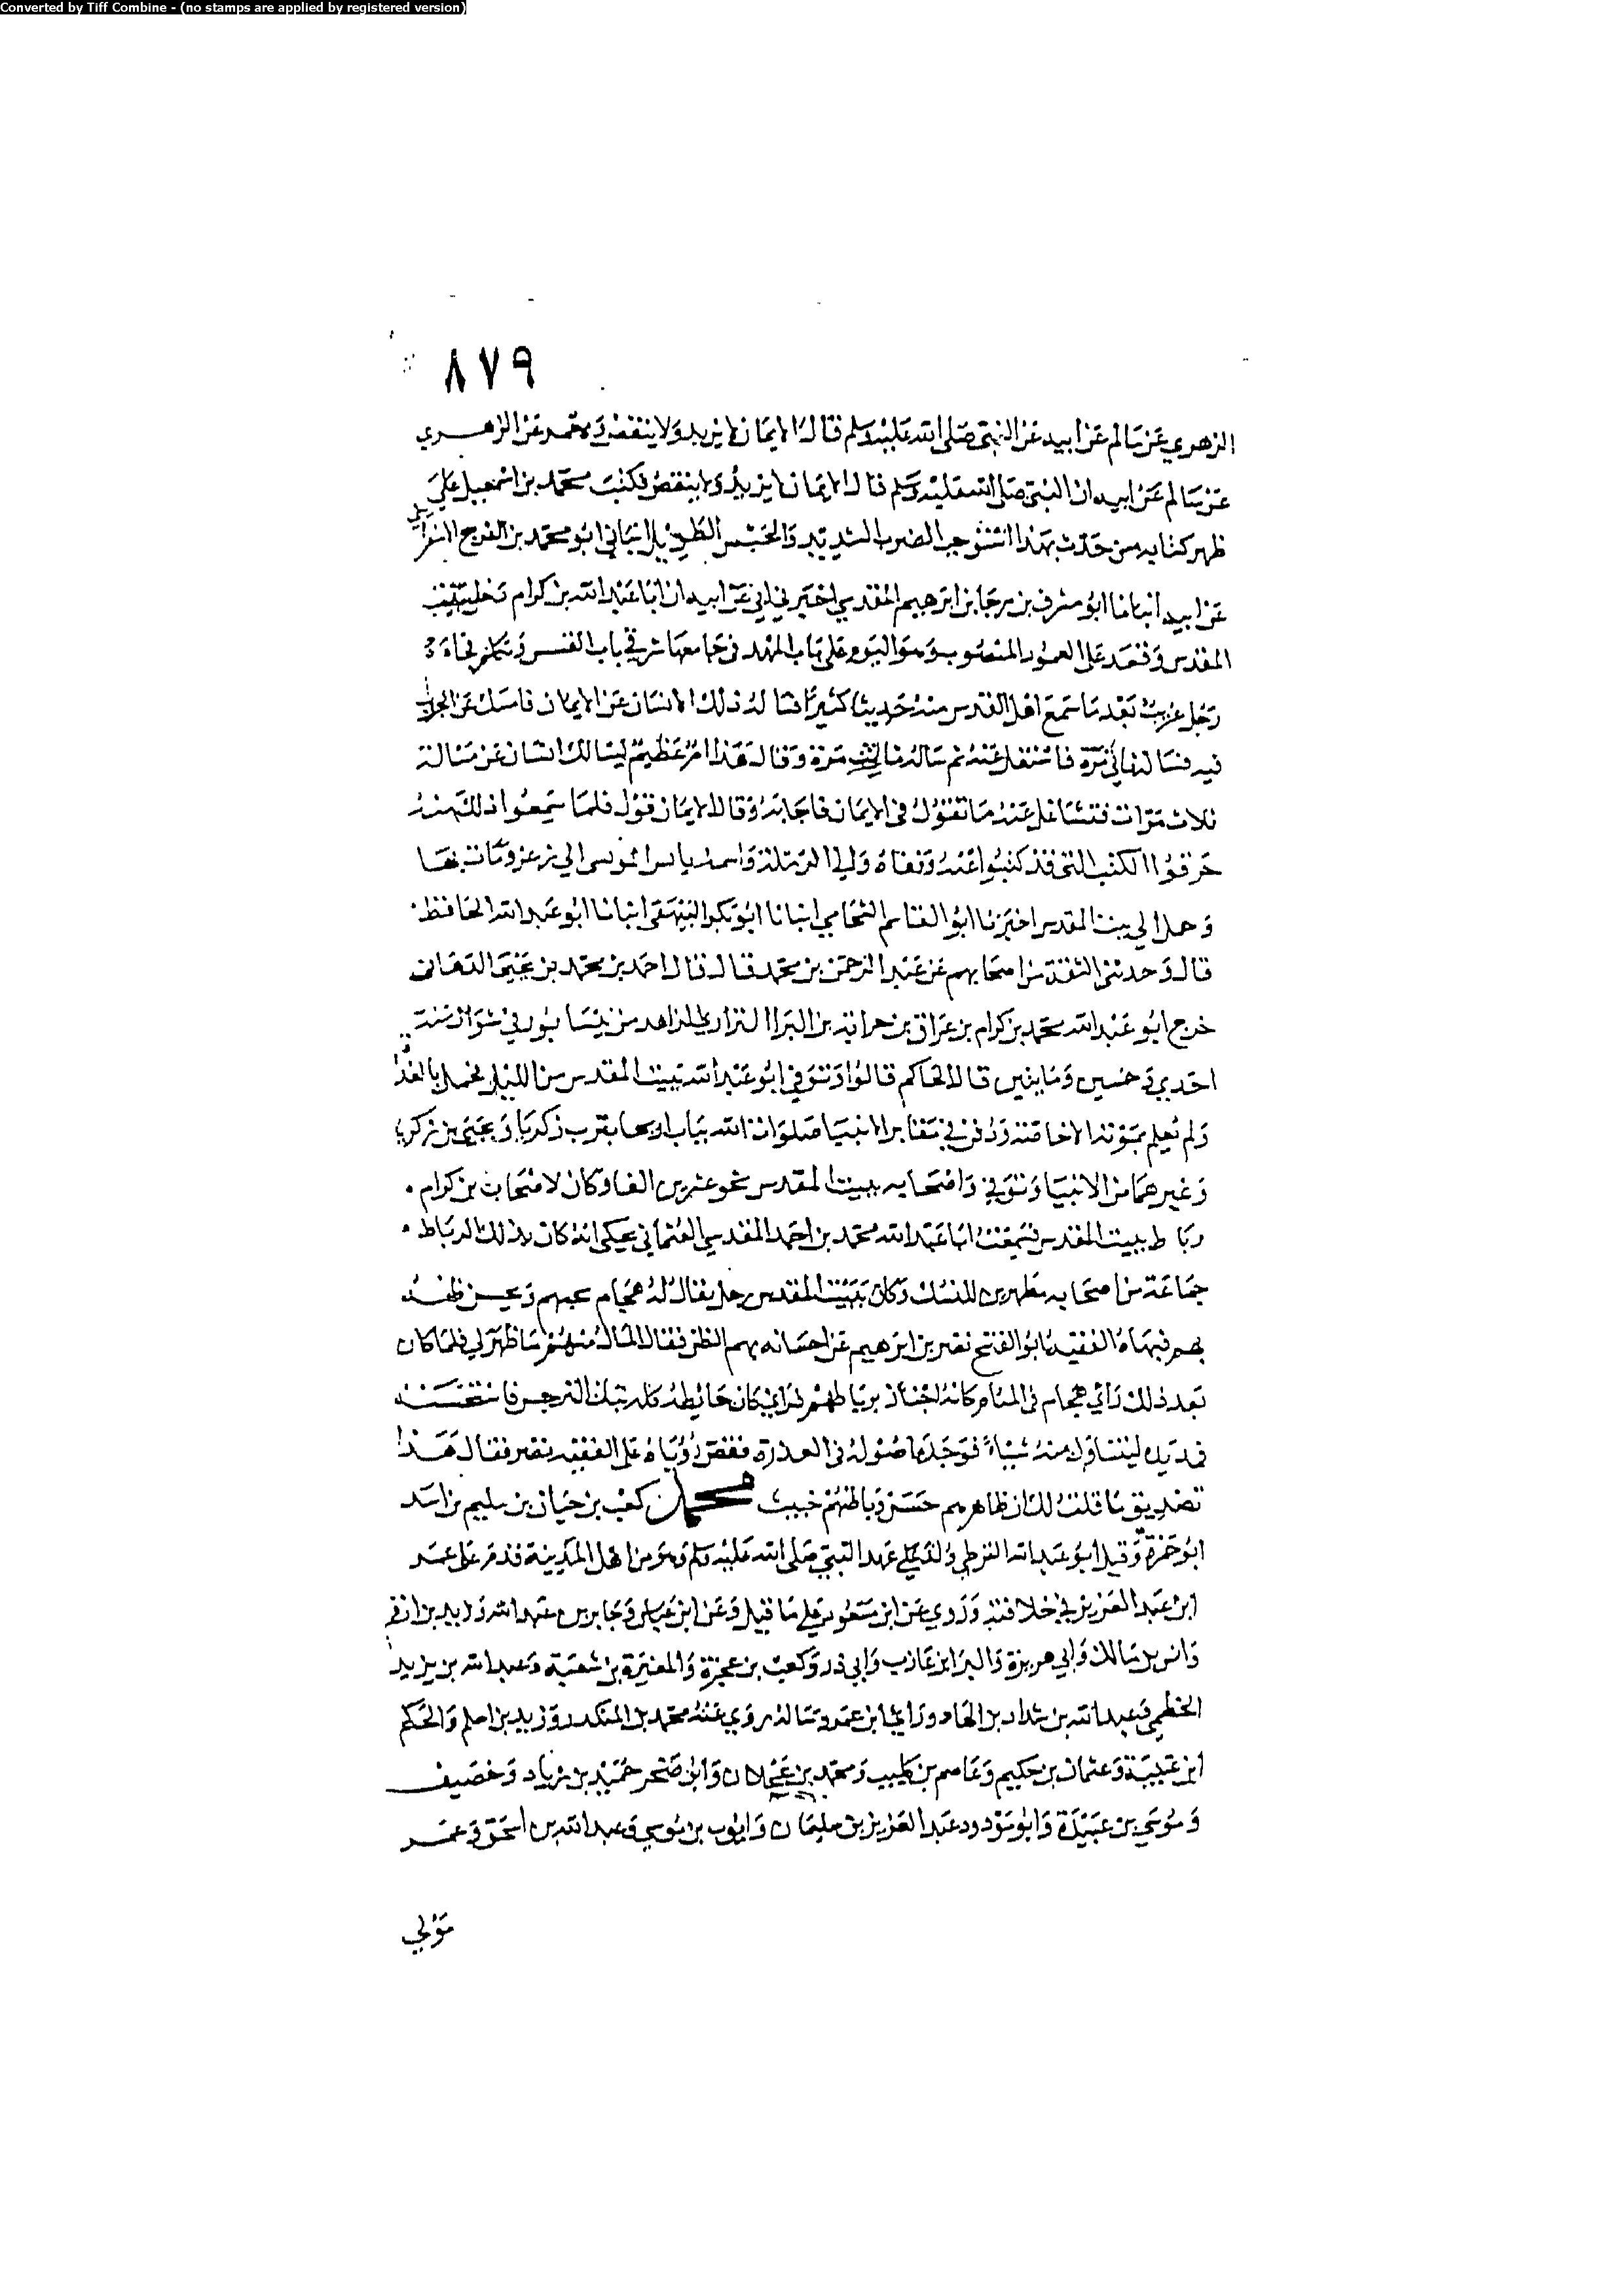 Converted by Tiff Combine - (no stamps are applied by registered version)
٨٧٩
الزهري عن سالم عن ابيه عن النبي صلى الله عليه وسلم قال الايمان لا يزيد ولا ينقص ومعمر عن الزهري
عن سالم عن ابيه ان النبي صلى الله عليه وسلم قال الايمان لا يزيد ولا ينقص فكتب محمد بن اسمعيل على
ظهر كتابه من حدث بهذا استوجب الضرب الشديد والحبس الطويل انباني ابو محمد بن الفرج الاسفرايني
عن ابيه انبانا ابو مشرف بن مرجا بن ابرهيم المقدسي اخبرني ابي عن ابيه ان ابا عبد الله بن كرام دخل بيت
المقدس وقعد على العمود المنصوب وهو اليوم على باب المهد في جامعها شرقي باب القدس وتكلم فجاءه
رجل غريب بعد ما سمع اهل القدس منه حديثا كثيرا فساله ذلك الانسان عن الايمان فامسك عن الجواب
فيه فساله ثاني مرة فاشتغل عنه ثم ساله ثالث مرة وقال هذا امر عظيم يسالك انسان عن مسالة
ثلاث مرات فتتشاغل عنه ما تقول في الايمان فاجابه وقال الايمان قول فلما سمعوا ذلك منه
حرقوا الكتب التي قد كتبوا عنه ونفاه والي الرملة واسمه يانس المونسي الى زعر ومات بها
وحمل الى بيت المقدس اخبرنا ابو القاسم الشحامي انبانا ابو بكر البيهقي انبانا ابو عبد الله الحافظ
قال وحدثني الثقة من اصحابهم عن عبد الرحمن بن محمد قال قال احمد بن محمد بن يحيى الدهان
خرج ابو عبد الله محمد بن كرام بن عراق بن حزابة بن البرا الزاهد من نيسابور في شوال سنة
احدى وخمسين ومايتين قال الحاكم قالوا وتوفي ابو عبد الله ببيت المقدس من الليل فحمل بالغداة
ولم يعلم بموته الا خاصته ودفن في مقابر الانبيا صلوات الله بباب اريحا بقرب زكريا ويحيى بن زكريا
وغيرهما من الانبيا وتوفي واصحابه ببيت المقدس نحو عشرين الفا وكان لاصحاب بن كرام
رباط ببيت المقدس فسمعت ابا عبد الله محمد بن احمد المقدسي العثماني يحكي انه كان بذلك الرباط
جماعة من اصحابه مظهرين للنسك وكان ببيت المقدس رجل يقال له هجام يحبهم ويحسن ظنه
بهم فنهاه الفقيه ابو الفتح نصر بن ابرهيم عن احسانه بهم الظن فقال انما لك منهم ما ظهر لي فلما كان
بعد ذلك راى هجام في المنام كانه اجتاز برباطهم فراى كان حايطه كله نبات النرجس فاستحسنه
فمد يده ليتناول منه شيئا فوجد اصوله في العذرة فقص رؤياه على الفقيه نصر فقال هذا
تصديق ما قلت لك ان ظاهرهم حسن وباطنهم خبيث محمد بن كعب بن حيان بن سليم بن اسد
ابو حمزة وقيل ابو عبد الله القرظي ولد على عهد النبي صلى الله عليه وسلم وهو من اهل المدينة قدم على عمر
ابن عبد العزيز في خلافته وروى عن ابن مسعود على ما قيل وعن ابن عباس وجابر بن عبد الله وزيد بن ارقم
وانس بن مالك وابي هريرة والبرا بن عازب وابي ذر وكعب بن عجرة والمغيرة بن شعبة وعبد الله بن يزيد
الخطمي وعبد الله بن شداد بن الهاد وراى ابن عمر وساله روى عنه محمد بن المنكدر وزيد بن اسلم والحكم
ابن عتيبة وعثمان بن حكيم وعاصم بن كليب ومحمد بن عجلان وابو صخر حميد بن زياد وخصيف
وموسى بن عبيدة وابو مودود عبد العزيز بن سليمان وايوب بن موسى وعبد الله بن اسحق وعمر
مولى